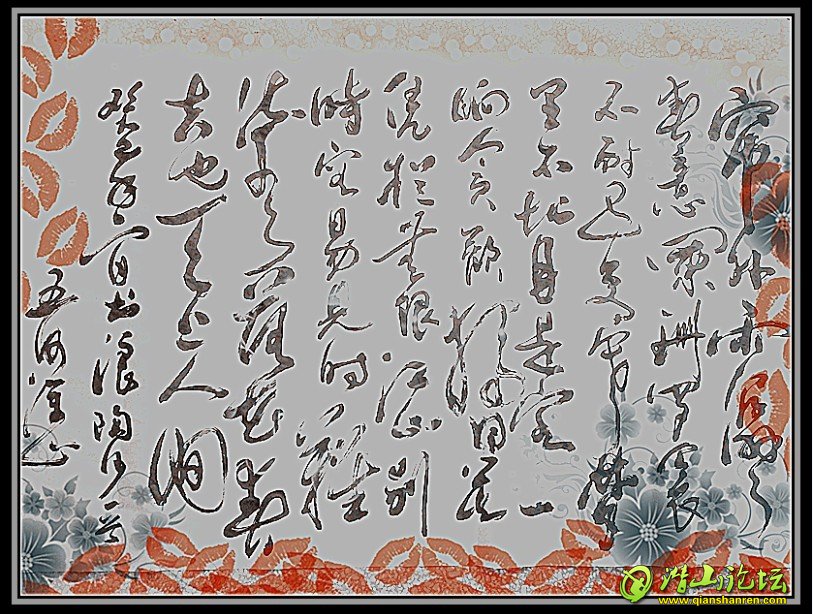 簾外雨潺潺
春意阑珊罗衾
不耐五更寒梦
里不知身是客一
晌贪欢独自莫
凭栏无限江山别
時容易见时難
流水落花春
去也天上人间
癸巳年夏书浪陶沙一首
五河
潜山论坛
www.qianshanren.com